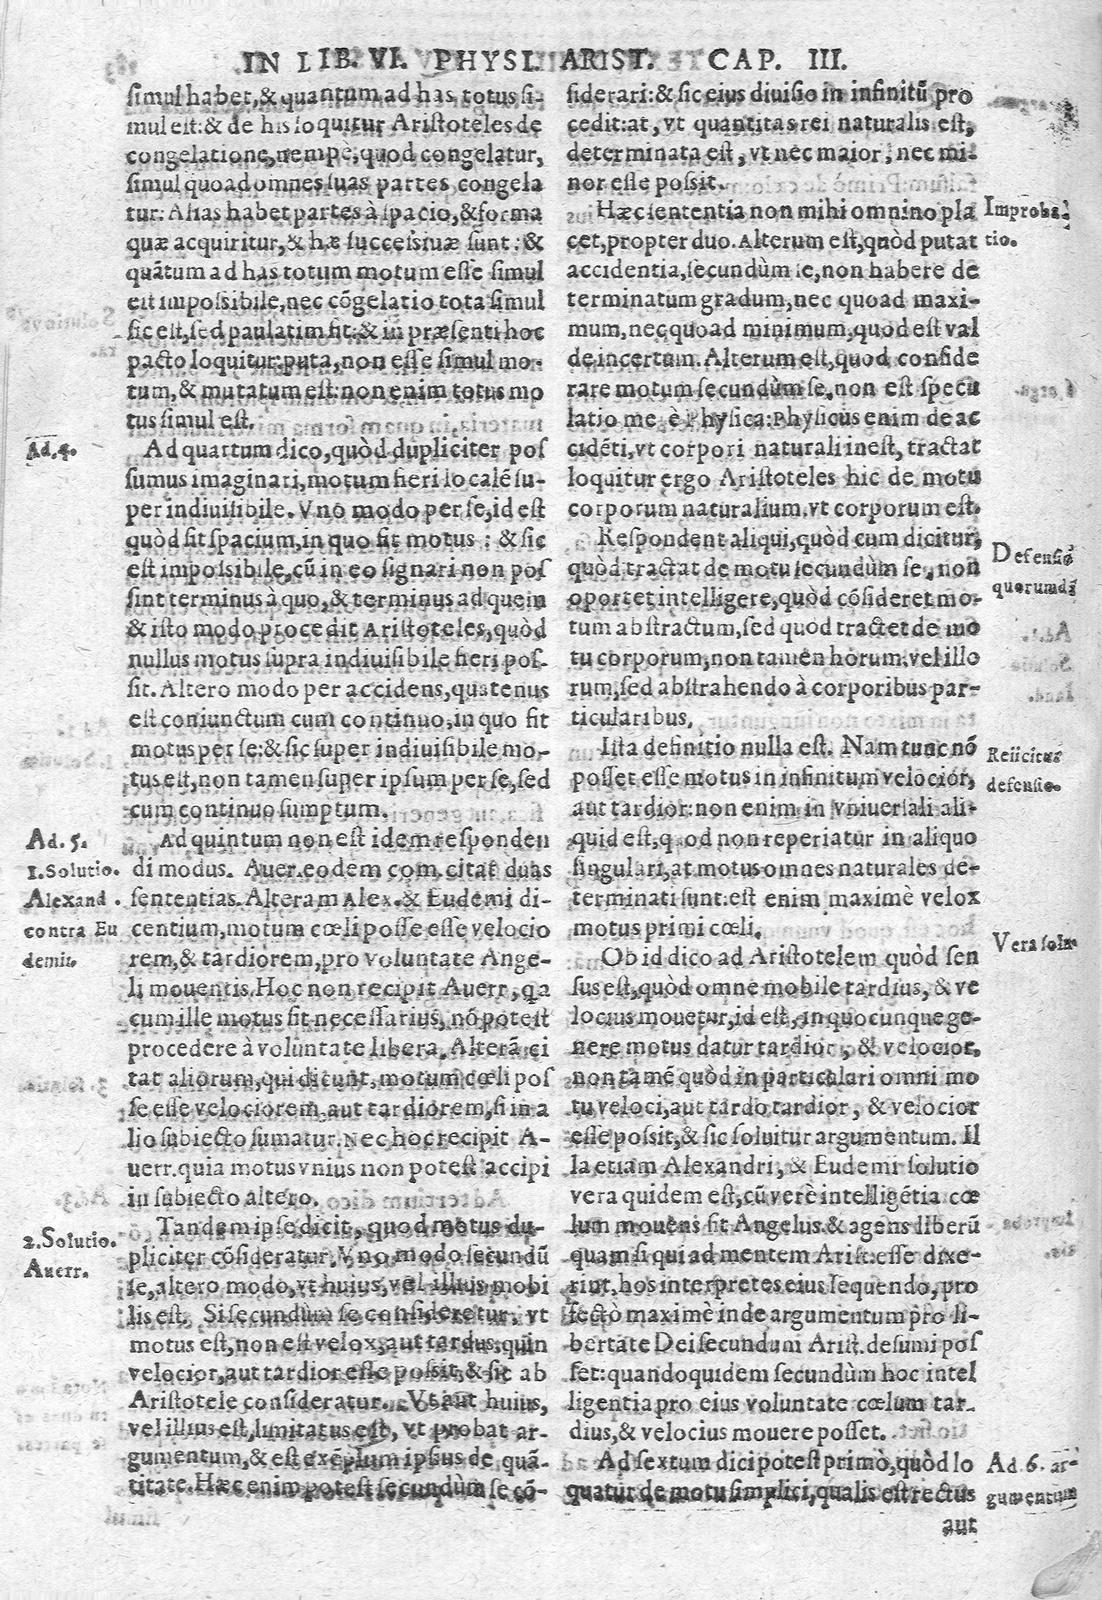 IN LIB. VI. PHYSI. ARIST. CAP. III.
simul habet, & quantum ad has totus si-
mul est: & de his loquitur Aristoteles de
congelatione, nempe, quod congelatur,
simul quoad omnes suas partes congela
tur: Alias habet partes à spacio, & forma
quæ acquiritur, & hæ successiuæ sunt: &
quãtum ad has totum motum esse simul
est impossibile, nec cõgelatio tota simul
sic est, sed paulatim fit: & in præsenti hoc
pacto loquitur: puta, non esse simul mo-
tum, & mutatum est: non enim totus mo
tus simul est.
Ad. 4.
Ad quartum dico, quòd dupliciter pos
sumus imaginari, motum fieri localẽ su-
per indiuisibile. Vno modo per se, id est
quòd sit spacium, in quo fit motus: & sic
est impossibile, cũ in eo signari non pos
sint terminus à quo, & terminus ad quem
& isto modo procedit Aristoteles, quòd
nullus motus supra indiuisibile fieri pos-
sit. Altero modo per accidens, quatenus
est coniunctum cum continuo, in quo fit
motus per se: & sic super indiuisibile mo-
tus est, non tamen super ipsum per se, sed
cum continuo sumptum.
Ad. 5.
1. Solutio.
Alexand.
contra Eu
demū.
Ad quintum non est idem responden
di modus. Auer. eodem com. citat duas
sententias. Alteram Alex. & Eudemi di-
centium, motum cœli posse esse velocio
rem, & tardiorem, pro voluntate Ange-
li mouentis. Hoc non recipit Auerr, qa
cum ille motus sit necessarius, nõ potest
procedere à voluntate libera. Alterã ci
tat aliorum, qui dicunt, motum cœli pos
se esse velociorem, aut tardiorem, si in a
lio subiecto sumatur. Nec hoc recipit A-
uerr. quia motus vnius non potest accipi
in subiecto altero.
2. Solutio.
Auerr.
Tandem ipse dicit, quod motus du-
pliciter cõsideratur. Vno modo secundũ
se, altero modo, vt huius, vel illius mobi
lis est. Si secundùm se consideretur, vt
motus est, non est velox, aut tardus: quin
velocior, aut tardior esse possit, & sic ab
Aristotele consideratur. Vt aut huius,
vel illius est, limitatus est, vt probat ar-
gumentum, & est exẽplum ipsius de quã-
titate. Hæc enim potest secundùm se cõ-
siderari: & sic eius diuisio in infinitũ pro
cedit: at, vt quantitas rei naturalis est,
determinata est, vt nec maior, nec mi-
nor esse possit.
Improba-
tio.
Hæc sententia non mihi omnino pla
cet, propter duo. Alterum est, quòd putat
accidentia, secundùm se, non habere de
terminatum gradum, nec quoad maxi-
mum, nec quoad minimum, quod est val
de incertum. Alterum est, quod conside
rare motum secundùm se, non est specu
latio mere Physica: Physicus enim de ac
cidẽti, vt corpori naturali inest, tractat
loquitur ergo Aristoteles hic de motu
corporum naturalium, vt corporum est.
Defensio
quorumdã
Respondent aliqui, quòd cum dicitur,
quòd tractat de motu secundùm se, non
oportet intelligere, quòd cõsideret mo-
tum abstractum, sed quòd tractet de mo
tu corporum, non tamen horum, vel illo
rum, sed abstrahendo à corporibus par-
ticularibus.
Reiicitur
defensio.
Ista definitio nulla est. Nam tunc nõ
posset esse motus in infinitum velocior,
aut tardior: non enim in vniuersali ali-
quid est, quod non reperiatur in aliquo
singulari, at motus omnes naturales de-
terminati sunt: est enim maximè velox
motus primi cœli.
Vera solu.
Ob id dico ad Aristotelem quòd sen
sus est, quòd omne mobile tardius, & ve
locius mouetur, id est, in quocunque ge-
nere motus datur tardior, & velocior,
non tamẽ quòd in particulari omni mo
tu veloci, aut tardo tardior, & velocior
esse possit, & sic soluitur argumentum. Il
la etiam Alexandri, & Eudemi solutio
vera quidem est, cũ verè intelligẽtia cœ
lum mouens sit Angelus, & agens liberũ
quam si qui ad mentem Arist: esse dixe-
rint, hos interpretes eius sequendo, pro
fectò maximè inde argumentum pro li-
bertate Dei secundum Arist. desumi pos
set: quandoquidem secundùm hoc intel
ligentia pro eius voluntate cœlum tar-
dius, & velocius mouere posset.
Ad. 6. ar-
gumentum
Ad sextum dici potest primò, quòd lo
quatur de motu simplici, qualis est rectus
aut